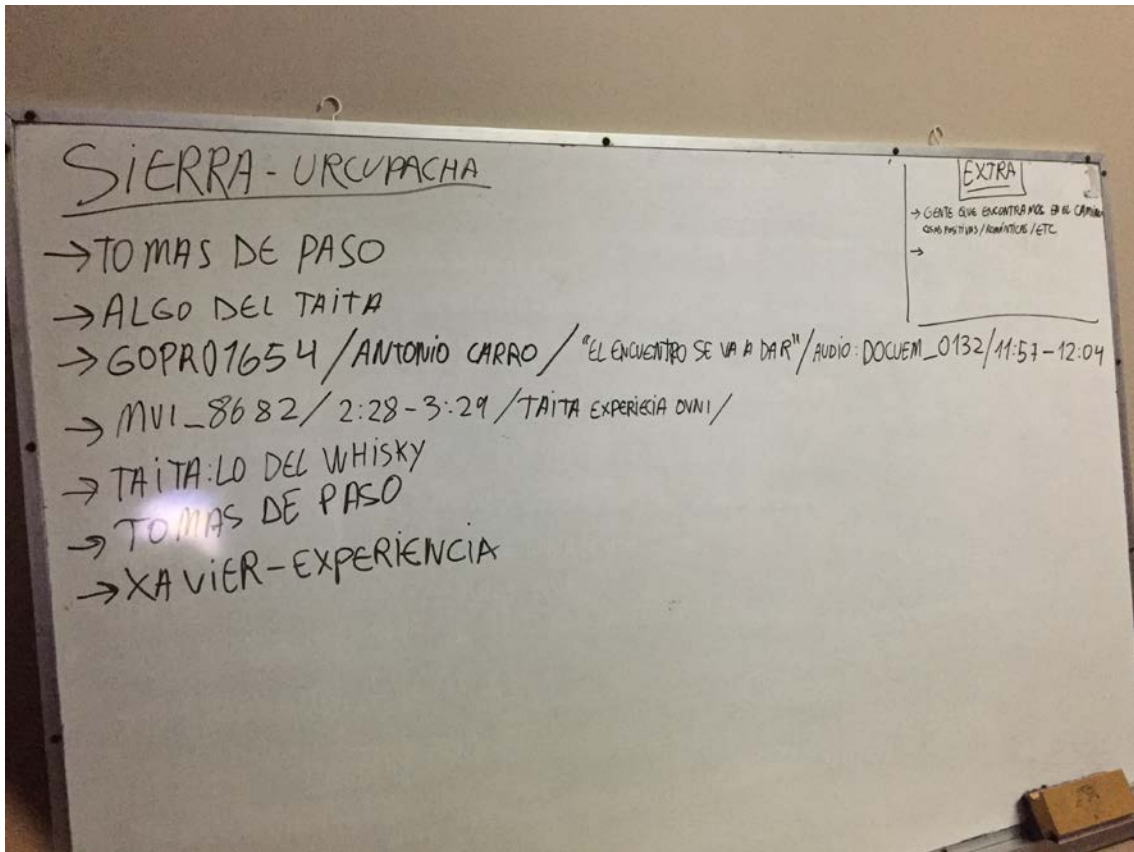 SiERRA - URCUPACHA
→ TOMAS DE PASO
→ ALGO DEL TAiTA
→ GOPRO1654 / ANTONIO CARRO / "EL ENCUENTRO SE VA A DAR" / AUDIO: DOCUEM_0132 / 11:57-12:04
→ MVI_8682 / 2:28-3:29 / TAiTA EXPERIECIA OVNI /
→ TAiTA: LO DEL WHiSKY
→ TOMAS DE PASO
→ XAViER-EXPERiENCiA
EXTRA
→ GENTE QUE ENCONTRAMOS EN EL CAMiNO
COSAS POSiTiVAS / ROMÁNTiCAS / ETC
→